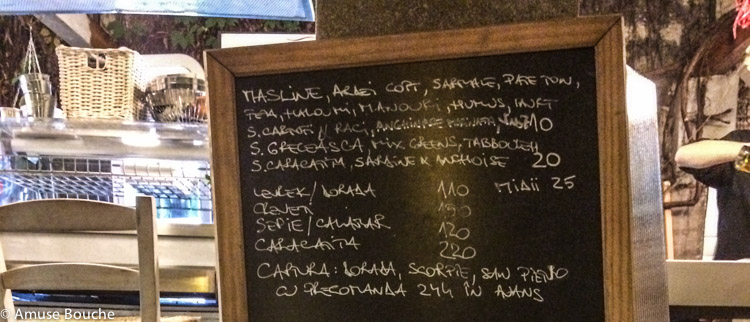 MASLINE, ARDEI COPT, SARMALE, PATE TON,
FETA, HALOUMI, MANOURI, HUMUS, IAURT
S. CARNEI // RACI, ANGHINARE 10
S. GRECEASCA, MIX GREENS, TABBOULEH
S. CARACATITA, SARDINE & ANCHOISE 20
LEVREK / DORADA 110 MIDII 25
CREVETI
SEPIE / CALAMAR 120
CARACATITA 220
CAPTURA: DORADA, SCORPIE, SAN PIETRO
CU PRECOMANDA 24H IN AVANS
© Amuse Bouche